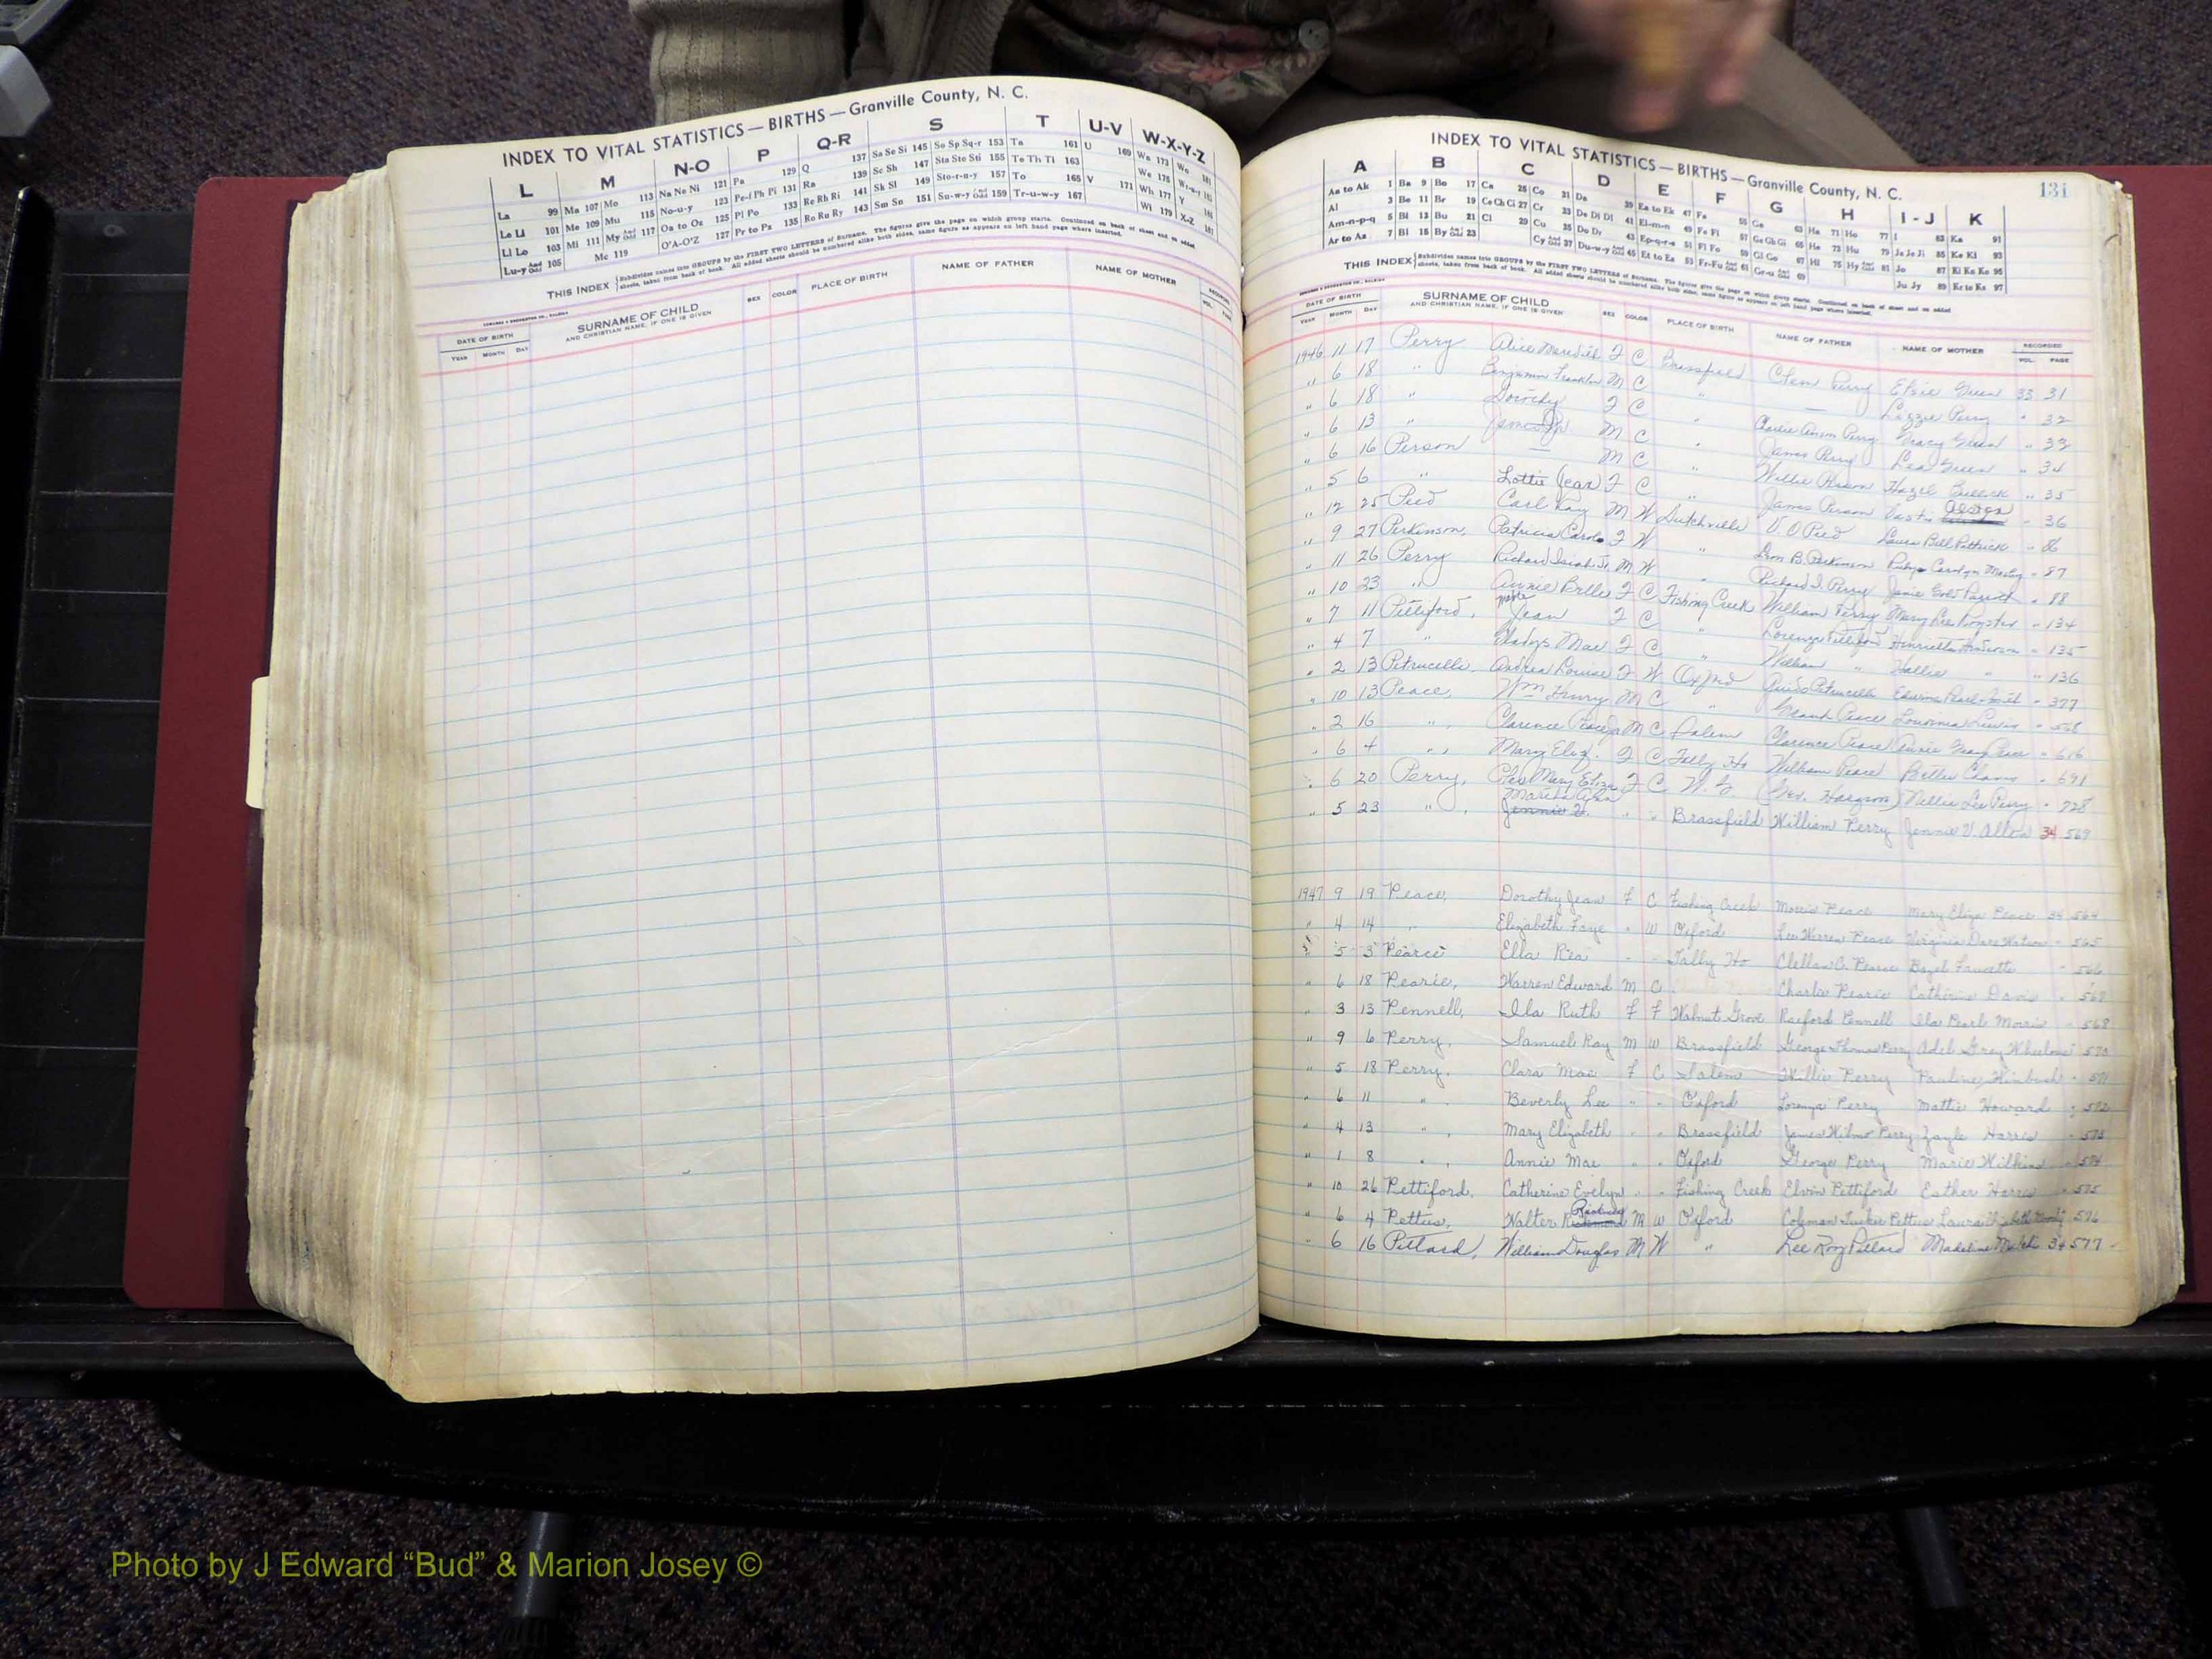 INDEX TO VITAL STATISTICS — BIRTHS — Granville County, N. C.
L M N-O P Q-R S T U-V W-X-Y-Z
La 99 Ma 107 Mo 113 Na Ne Ni 121 Pa 129 Q 137 Sa Se Si 145 So Sp Sq-r 153 Ta 161 U 169 Wa 173 Wo 181
Le Li 101 Me 109 Mu 115 No-u-y 123 Pe-f Ph Pi 131 Ra 139 Sc Sh 147 Sta Ste Sti 155 Te Th Ti 163 We 175
Ll Lo 103 Mi 111 My And Odd 117 Oa to Oz 125 Pl Po 133 Re Rh Ri 141 Sk Sl 149 Sto-r-u-y 157 To 165 V 171 Wh 177 Y
Lu-y And Odd 105 Mc 119 O'A-O'Z 127 Pr to Pz 135 Ro Ru Ry 143 Sm Sn 151 Su-w-y And Odd 159 Tr-u-w-y 167 Wi 179 X-Z 187
THIS INDEX Subdivides names into GROUPS by the FIRST TWO LETTERS of Surname. The figures give the page on which group starts. Continued on back of sheet and on added
sheets, taken from back of book. All added sheets should be numbered alike both sides, same figure as appears on left hand page where inserted.
DATE OF BIRTH SURNAME OF CHILD SEX COLOR PLACE OF BIRTH NAME OF FATHER NAME OF MOTHER RECORDED
YEAR MONTH DAY AND CHRISTIAN NAME, IF ONE IS GIVEN VOL. PAGE
INDEX TO VITAL STATISTICS — BIRTHS — Granville County, N. C. 131
A B C D E F G H I - J K
Aa to Ak 1 Ba 9 Bo 17 Ca 25 Co 31 Da 39 Ea to Ek 47 Fa 55 Ga 63 Ha 71 Ho 77 I 83 Ka 91
Al 3 Be 11 Br 19 Ce Ch Ci 27 Cr 33 De Di Dj 41 El-m-n 49 Fe Fi 57 Ge Gh Gi 65 He 73 Hu 79 Ja Je Ji 85 Ke Kl 93
Am-n-p-q 5 Bi 13 Bu 21 Cl 29 Cu 35 Do Dr 43 Ep-q-r-s 51 Fl Fo 59 Gl Go 67 Hi 75 Hy And Odd 81 Jo 87 Ki Kn Ko 95
Ar to Az 7 Bl 15 By And Odd 23 Cy And Odd 37 Du-w-y And Odd 45 Et to Ez 53 Fr-Fu And Odd 61 Gr-u And Odd 69 Ju Jy 89 Kr to Kz 97
THIS INDEX Subdivides names into GROUPS by the FIRST TWO LETTERS of Surname. The figures give the page on which group starts. Continued on back of sheet and on added
sheets, taken from back of book. All added sheets should be numbered alike both sides, same figure as appears on left hand page where inserted.
DATE OF BIRTH SURNAME OF CHILD SEX COLOR PLACE OF BIRTH NAME OF FATHER NAME OF MOTHER RECORDED
YEAR MONTH DAY AND CHRISTIAN NAME, IF ONE IS GIVEN VOL. PAGE
1946 11 17 Perry Alice Meredith F C Brassfield Clem Perry Elsie Green 33 31
" 6 18 " Benjamin Franklin M C " — Lizzie Perry " 32
" 6 18 " Dorothy F C " Charlie Perry Gracy Green " 33
" 6 13 " James Jr. M C " James Perry Lea Green " 34
" 6 16 Person — M C " Willie Person Hazel Bullock " 35
" 5 6 " Lottie Jean F C " James Person " 36
" 12 25 Pied Carl Ray M W Dutchville V. O Pied Laura Bell Pettrick " 86
" 9 27 Perkinson, Patricia Carol F W " Leon B. Perkinson Ruby Carolyn " 87
" 11 26 Perry Richard Isiah Jr. M W " Richard I. Perry Janie " 88
" 10 23 " Annie Belle F C Fishing Creek William Perry Mary Lee Royster " 134
" 7 11 Pettiford, Jean F C " Lorenza Pettiford Henrietta Anderson " 135
" 4 7 " Gladys Mae F C " William " Hallie " " 136
" 2 13 Petrucelli, Andrea Louise F W Oxford Guido Petrucelli Edwina Pearl Smith " 377
" 10 13 Peace, Wm Henry M C " Grant Peace Louvenia Lewis " 568
" 2 16 " , Clarence Peace Jr M C Salem Clarence Peace Annie Peace " 616
" 6 4 " , Mary Eliz. F C Tally Ho William Peace Bettie Chavis " 691
" 6 20 Perry, Cleo Mary Eliza F C W. G. Nellie Lee Perry " 728
Martha Ann
" 5 23 " , Jennie V. " " Brassfield William Perry Jennie V. Allen 34 569
1947 9 19 Peace, Dorothy Jean F C Fishing Creek Morris Peace Mary Eliza Peace 34 564
" 4 14 " Elizabeth Faye " W Oxford Lee Warren Peace Virginia Dare Watson " 565
" 5 3 Pearce Ella Rea " " Tally Ho Clellan C. Pearce Bazel Faucette " 566
" 6 18 Pearie, Warren Edward M C Charlie Pearie Catherine Davis " 567
" 3 13 Pennell, Ila Ruth F F Walnut Grove Raeford Pennell Ila Pearl Morris " 568
" 9 6 Perry, Samuel Ray M W Brassfield George Thomas Perry Adel Gray Wheelous " 570
" 5 18 Perry, Clara Mae F C Salem Willie Perry Pauline Kimbush " 571
" 6 11 " . Beverly Lee " " Oxford Lorenza Perry Mattie Howard " 572
" 4 13 " , Mary Elizabeth " " Brassfield James Wilmo Perry Zayle Harris " 573
" 1 8 " , Annie Mae " " Oxford George Perry Marie Wilkins " 574
" 10 26 Pettiford, Catherine Evelyn " " Fishing Creek Elvin Pettiford Esther Harris " 575
" 6 4 Pettus, Walter M W Oxford Coleman Tucker Pettus Laura Elizabeth " 576
" 6 16 Pittard, William Douglas M W " Lee Roy Pittard Madeline 34 577
Photo by J Edward “Bud” & Marion Josey ©